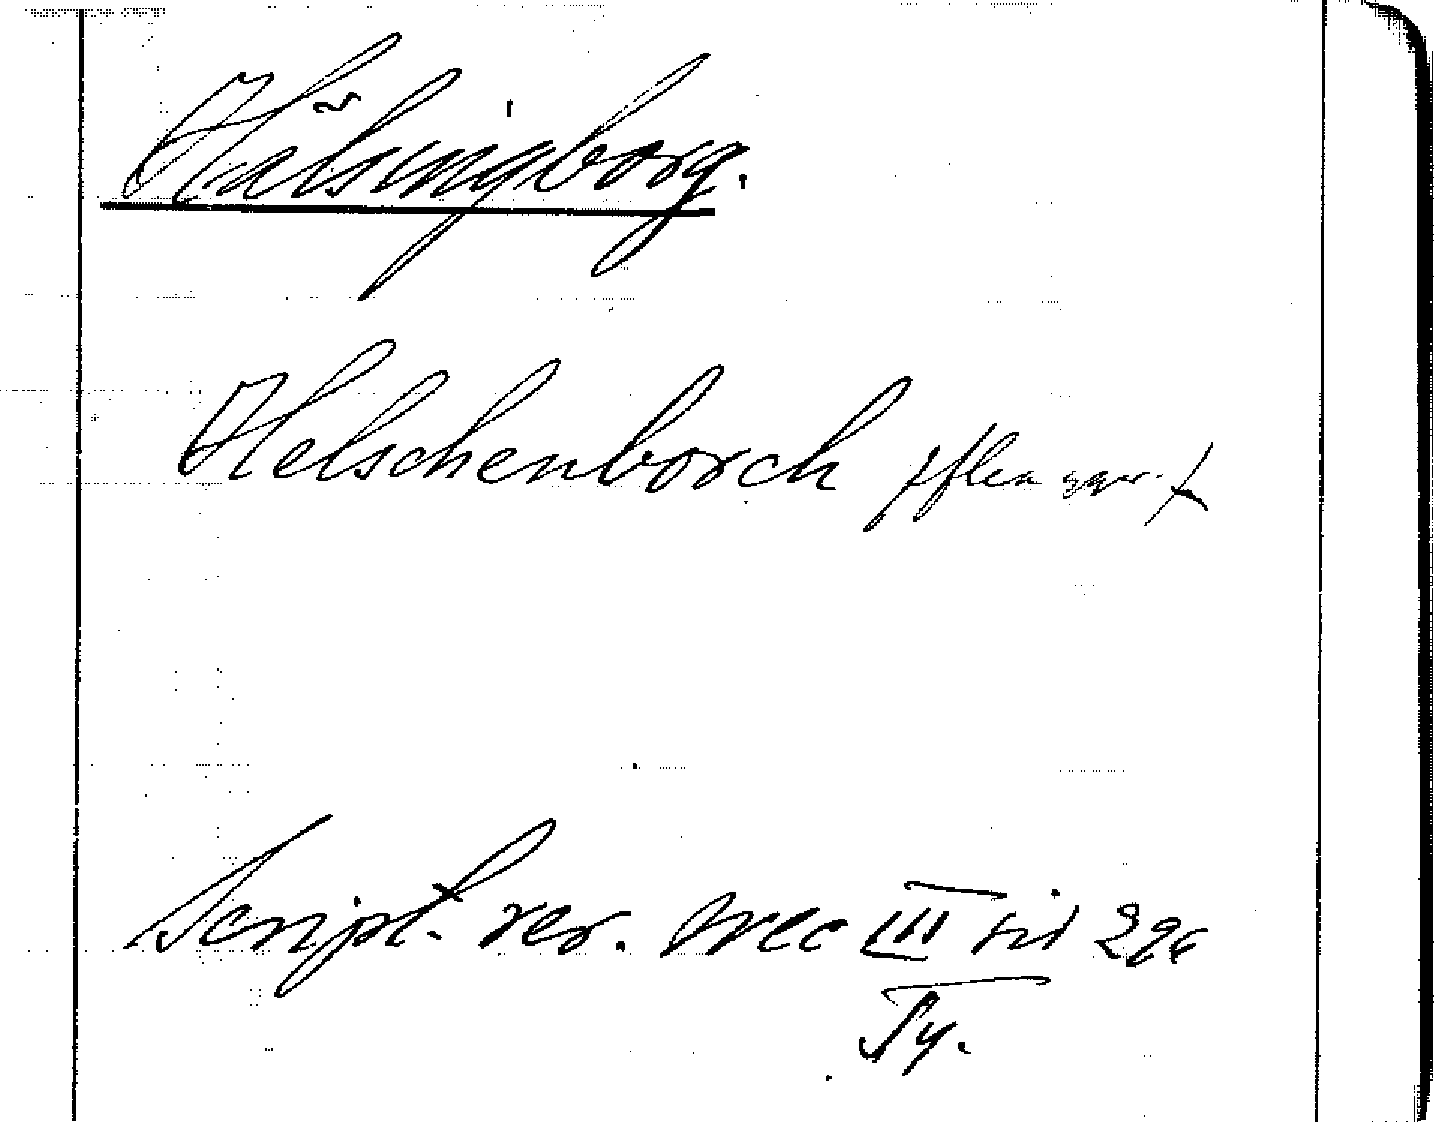 Hälsingborg.
Helschenborch flera ggr.
Script. rer. svec III sid 226
Ty.